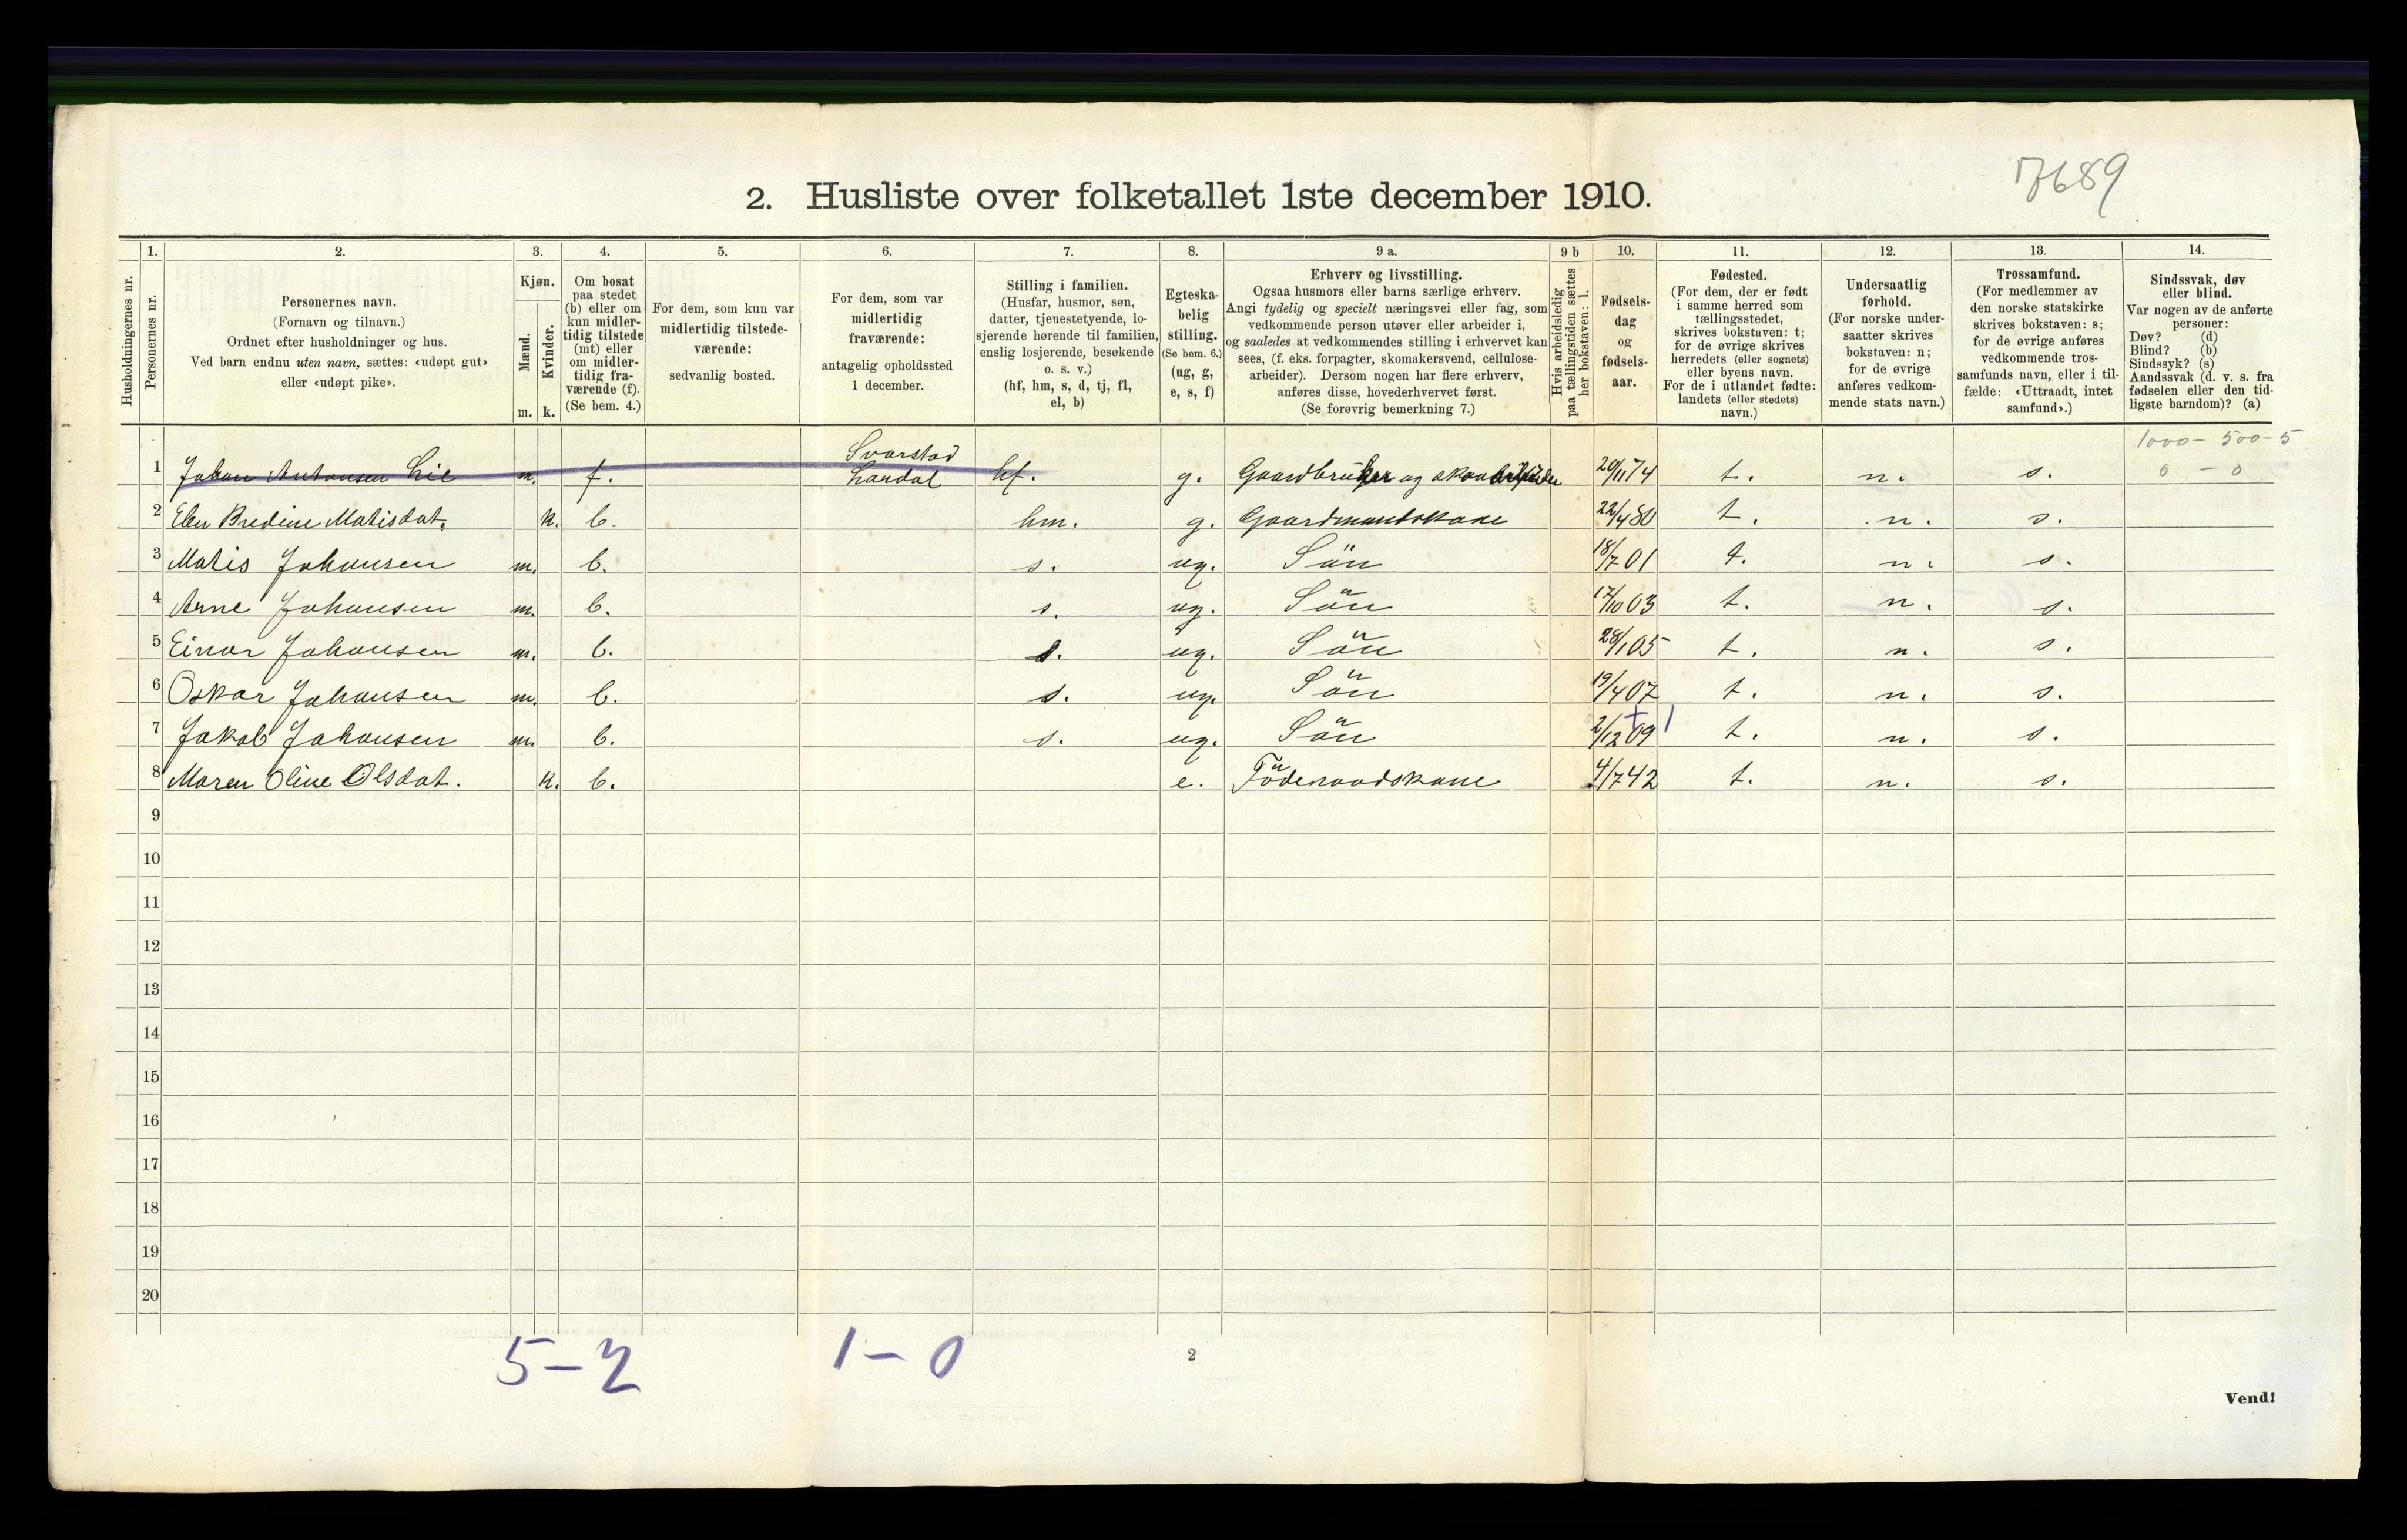 7689
2. Husliste over folketallet 1ste december 1910.
1. 2. 3. 4. 5. 6. 7. 8. 9 a. 9 b 10. 11. 12. 13. 14.
Husholdningernes nr.
Personernes nr.
Personernes navn.
(Fornavn og tilnavn.)
Ordnet efter husholdninger og hus.
Ved barn endnu uten navn, sættes: «udøpt gut»
eller «udøpt pike».
Kjøn.
Mænd.
Kvinder.
m. k.
Om bosat
paa stedet
(b) eller om
kun midler-
tidig tilstede
(mt) eller
om midler-
tidig fra-
værende (f).
(Se bem. 4.)
For dem, som kun var
midlertidig tilstede-
værende:
sedvanlig bosted.
For dem, som var
midlertidig
fraværende:
antagelig opholdssted
1 december.
Stilling i familien.
(Husfar, husmor, søn,
datter, tjenestetyende, lo-
sjerende hørende til familien,
enslig losjerende, besøkende
o. s. v.)
(hf, hm, s, d, tj, fl,
el, b)
Egteska-
belig
stilling.
(Se bem. 6.)
(ug, g,
e, s, f)
Erhverv og livsstilling.
Ogsaa husmors eller barns særlige erhverv.
Angi tydelig og specielt næringsvei eller fag, som
vedkommende person utøver eller arbeider i,
og saaledes at vedkommendes stilling i erhvervet kan
sees, (f. eks. forpagter, skomakersvend, cellulose-
arbeider). Dersom nogen har flere erhverv,
anføres disse, hovederhvervet først.
(Se forøvrig bemerkning 7.)
Hvis arbeidsledig
paa tællingstiden sættes
her bokstaven: l.
Fødsels-
dag
og
fødsels-
aar.
Fødested.
(For dem, der er født
i samme herred som
tællingsstedet,
skrives bokstaven: t;
for de øvrige skrives
herredets (eller sognets)
eller byens navn.
For de i utlandet fødte:
landets (eller stedets)
navn.)
Undersaatlig
forhold.
(For norske under-
saatter skrives
bokstaven: n;
for de øvrige
anføres vedkom-
mende stats navn.)
Trossamfund.
(For medlemmer av
den norske statskirke
skrives bokstaven: s;
for de øvrige anføres
vedkommende tros-
samfunds navn, eller i til-
fælde: «Uttraadt, intet
samfund».)
Sindssvak, døv
eller blind.
Var nogen av de anførte
personer:
Døv? (d)
Blind? (b)
Sindssyk? (s)
Aandssvak (d. v. s. fra
fødselen eller den tid-
ligste barndom)? (a)
1000 - 500 - 5
0 - 0
Svarstad
1 Johan Antonsen Lie m. f. Lardal hf. g. Gaardbruker og skovarbeider 20/11 74 t. n. s.
2 Elen Bredine Matisdat. k. b. hm. g. Gaardmandskone 22/4 80 t. n. s.
3 Matis Johansen m. b. s. ug. Sön 18/7 01 t. n. s.
4 Arne Johansen m. b. s. ug. Sön 17/10 03 t. n. s.
5 Einar Johansen m. b. s. ug. Sön 28/1 05 t. n. s.
6 Oskar Johansen m. b. s. ug. Sön 19/4 07 t. n. s.
7 Jakob Johansen m. b. s. ug. Sön 2/12 09 + 1 t. n. s.
8 Maren Oline Olsdat. k. b. e. Föderaadskone 4/7 42 t. n. s.
9
10
11
12
13
14
15
16
17
18
19
20
5 - 2 1 - 0
2
Vend!